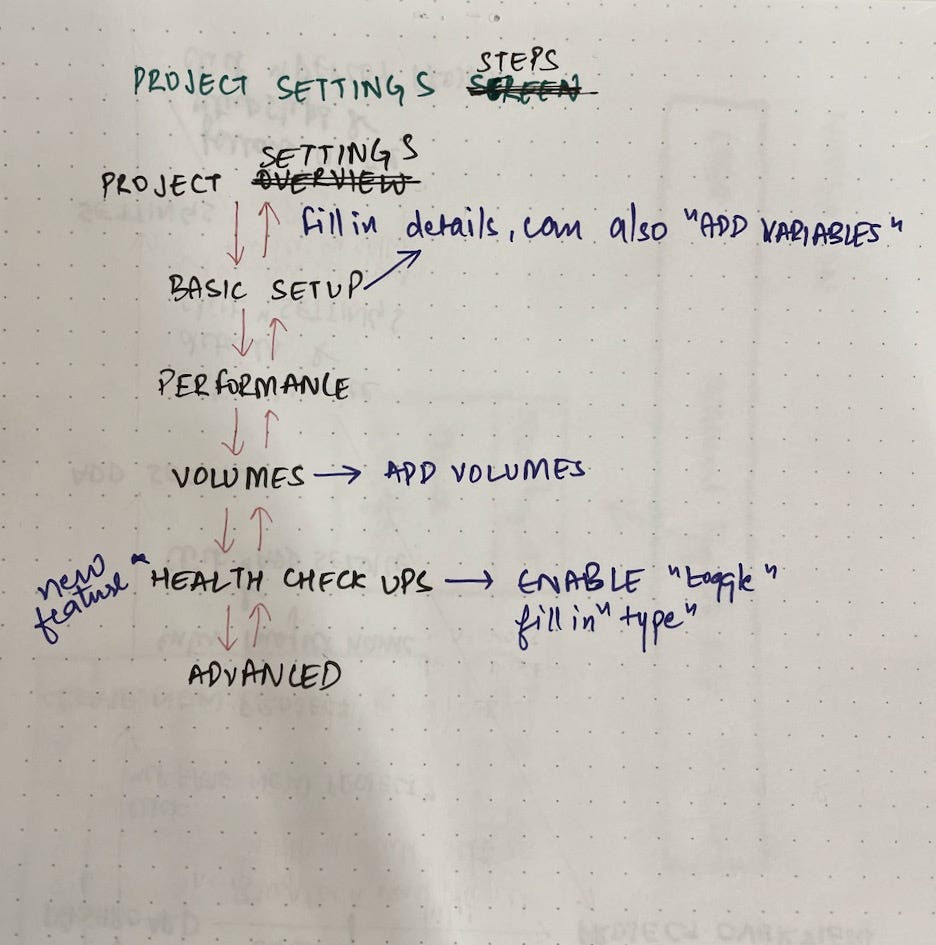 STEPS
PROJECT SETTINGS SCREEN
SETTINGS
PROJECT OVERVIEW
fill in details, can also "ADD VARIABLES"
BASIC SETUP
PERFORMANCE
VOLUMES → ADD VOLUMES
new feature * HEALTH CHECK UPS → ENABLE "toggle"
fill in "type"
ADVANCED